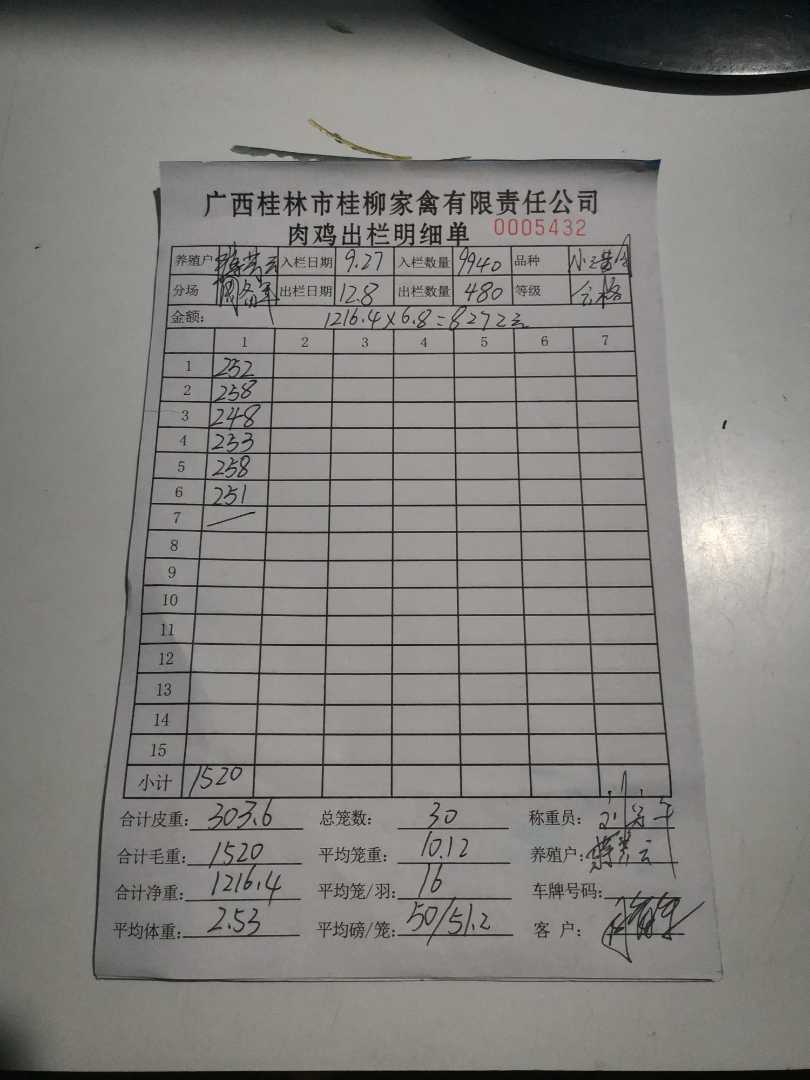 广西桂林市桂柳家禽有限责任公司
肉鸡出栏明细单 0005432
养殖户 入栏日期 9.27 入栏数量 9940 品种
分场 出栏日期 12.8 出栏数量 480 等级 合格
金额: 1216.4×6.8=8272元
1 2 3 4 5 6 7
1 252
2 258
3 248
4 253
5 258
6 251
7
8
9
10
11
12
13
14
15
小计 1520
合计皮重: 303.6 总笼数: 30 称重员:
合计毛重: 1520 平均笼重: 10.12 养殖户:
合计净重: 1216.4 平均笼/羽: 16 车牌号码:
平均体重: 2.53 平均磅/笼: 50/51.2 客 户: